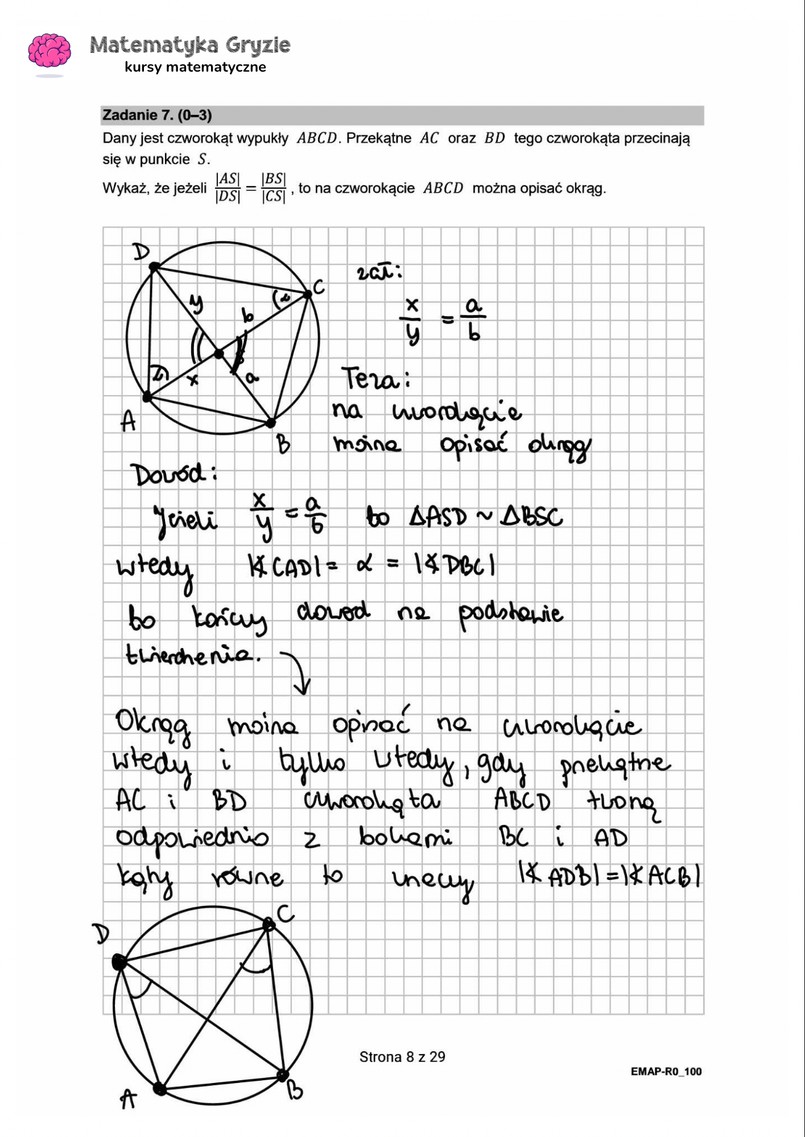 Matematyka Gryzie
kursy matematyczne
Zadanie 7. (0–3)
Dany jest czworokąt wypukły ABCD. Przekątne AC oraz BD tego czworokąta przecinają
się w punkcie S.
Wykaż, że jeżeli |AS|/|DS| = |BS|/|CS| , to na czworokącie ABCD można opisać okrąg.
D
C
y
b
α
α
x
a
A
B
zał:
x/y = a/b
Teza:
na czworokącie
można opisać okrąg
Dowód:
Jeżeli x/y = a/b to ΔASD ~ ΔBSC
wtedy |∢CAD| = α = |∢DBC|
to kończy dowód na podstawie
twierdzenia.
Okrąg można opisać na czworokącie
wtedy i tylko wtedy, gdy przekątne
AC i BD czworokąta ABCD tworzą
odpowiednio z bokami BC i AD
kąty równe to znaczy |∢ADB| = |∢ACB|
D
C
A
B
Strona 8 z 29
EMAP-R0_100